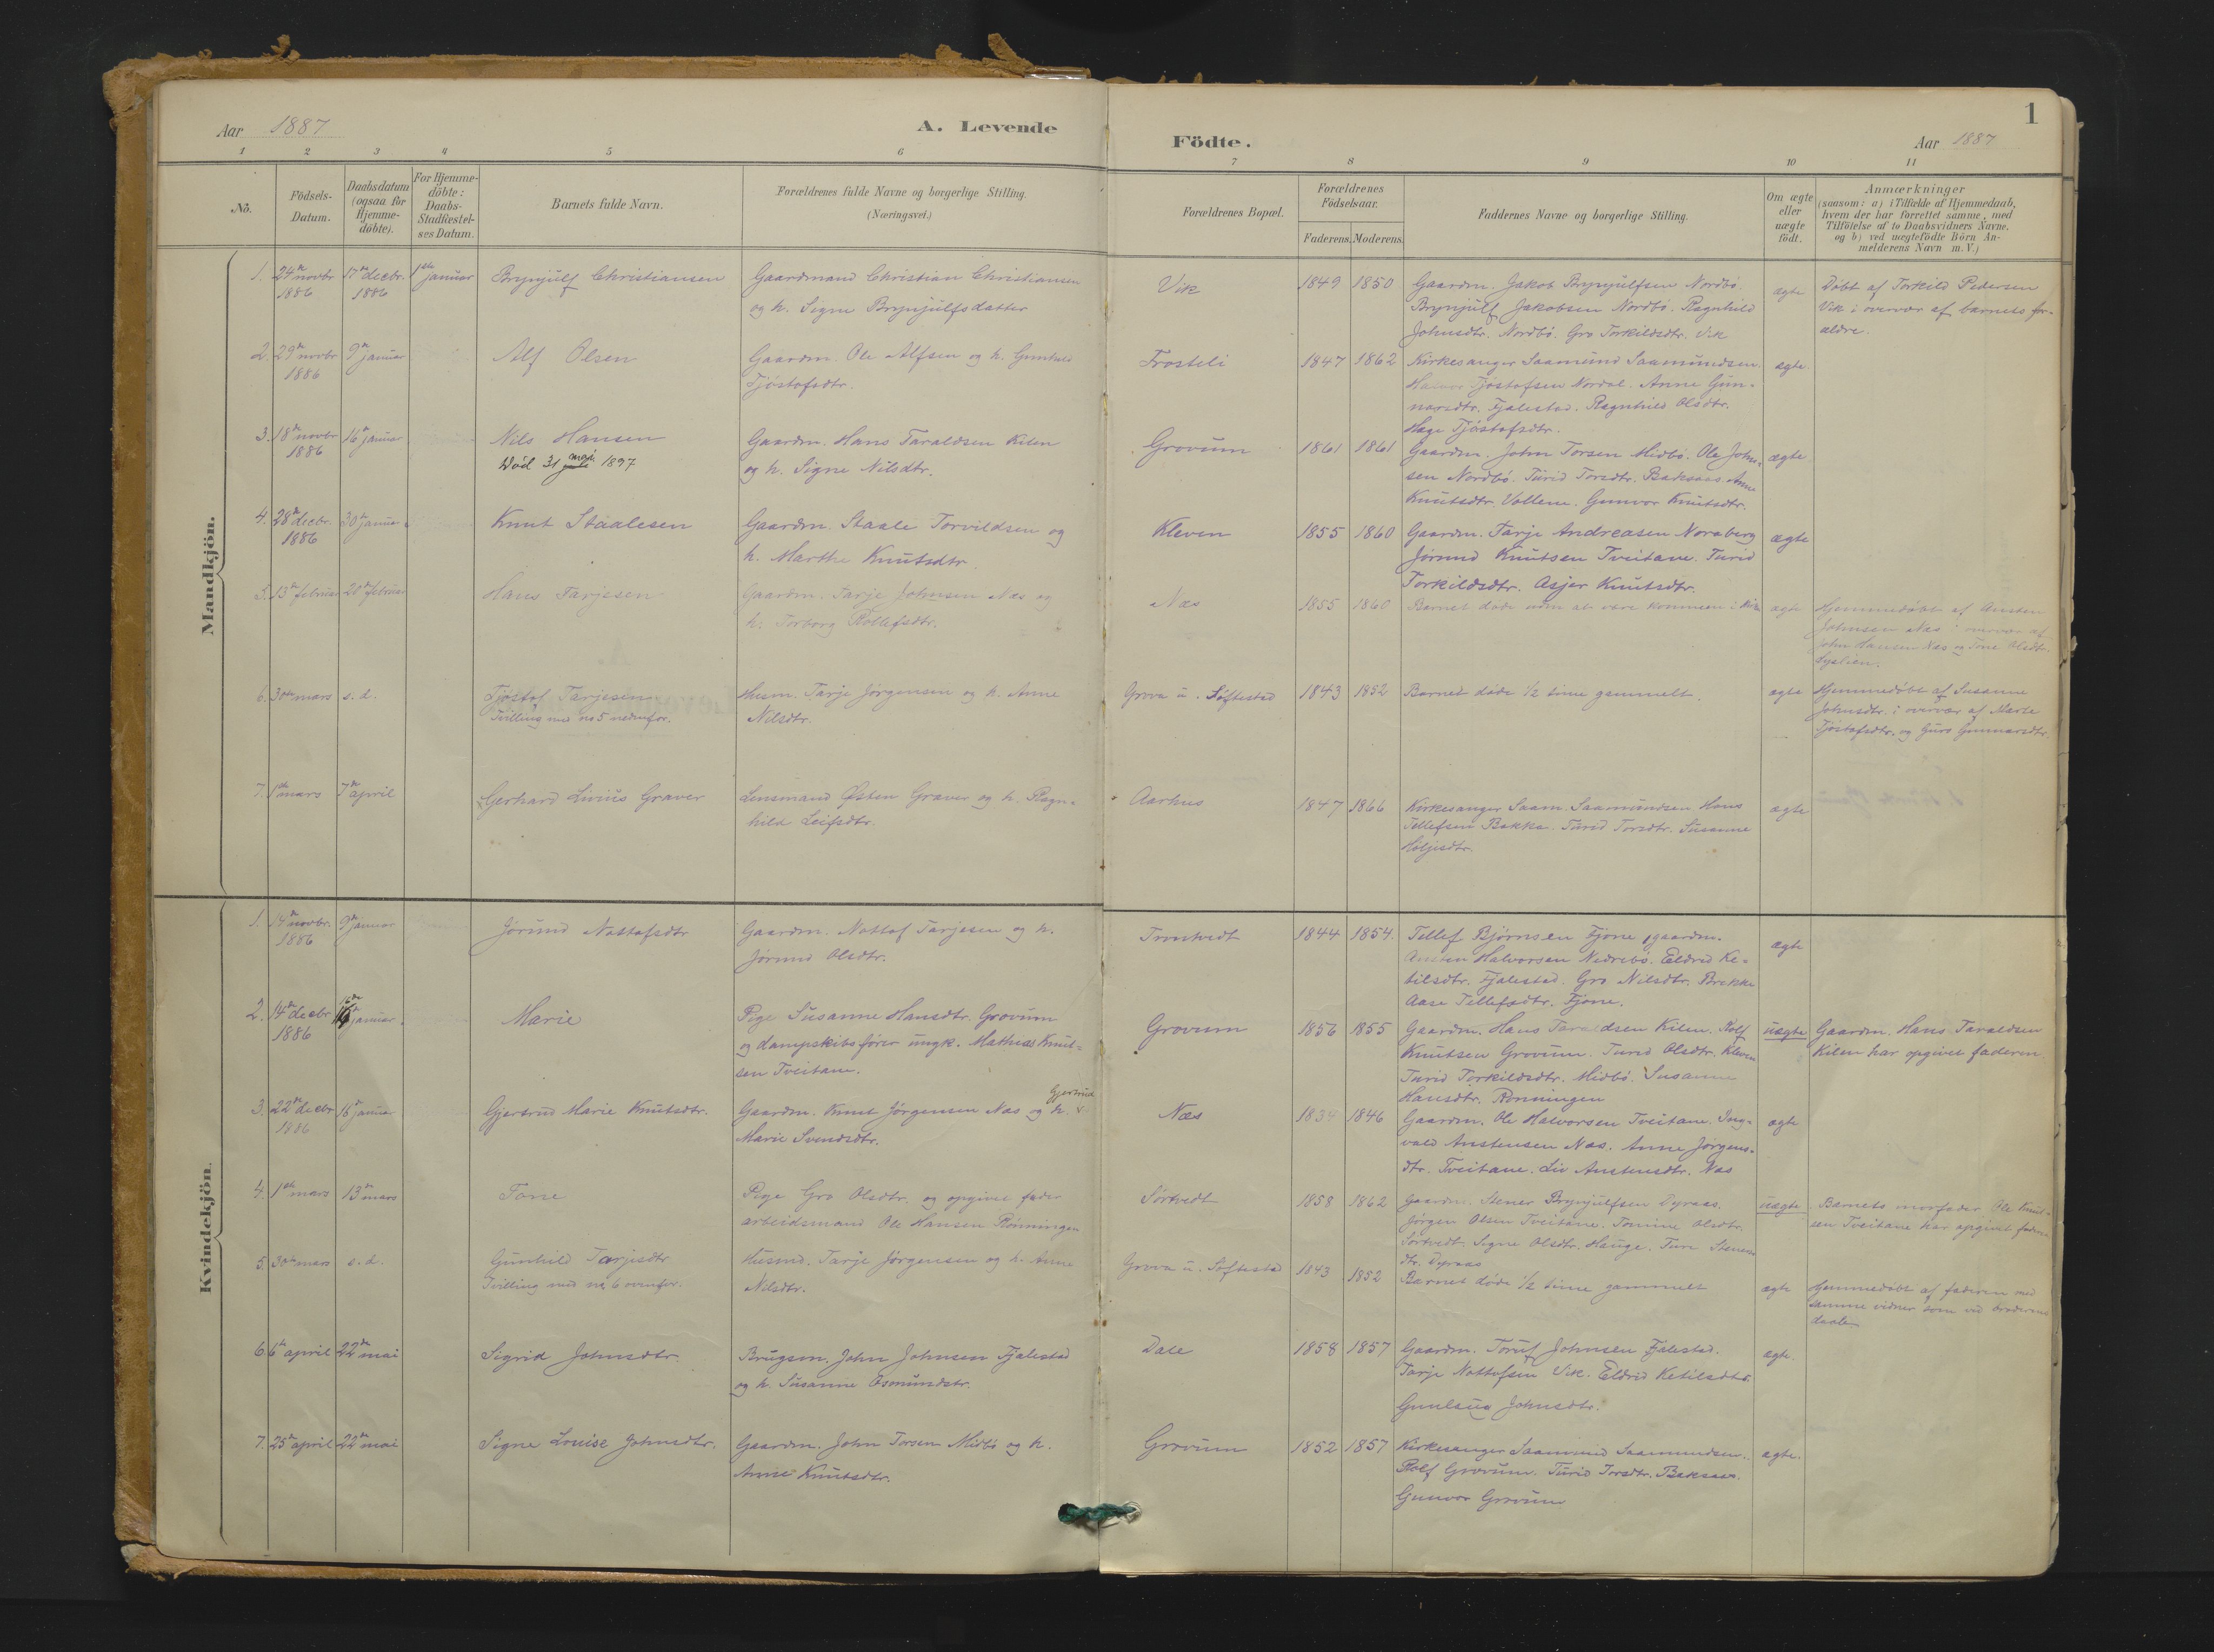 Aar 1887
A. Levende
Födte.
Aar 1887
1
1 2 3 4 5 6 7 8 9 10 11
No.
Födsels-
Datum.
Daabsdatum
(ogsaa for
Hjemme-
döbte).
For Hjemme-
döbte:
Daabs-
Stadfæstel-
ses Datum.
Barnets fulde Navn.
Forældrenes fulde Navne og borgerlige Stilling.
(Næringsvei.)
Forældrenes Bopæl.
Forældrenes
Födselsaar.
Faderens. Moderens.
Faddernes Navne og borgerlige Stilling.
Om ægte
eller
uægte
födt.
Anmærkninger
(saasom: a) i Tilfælde af Hjemmedaab,
hvem der har forrettet samme, med
Tilföielse af to Daabsvidners Navne.
og b) ved uægtefödte Börn An-
melderens Navn m. V.)
Mandkjön.
1. 24de novbr 1886
17de decbr. 1886
1ste januar
Brynjulf Christiansen
Gaardmand Christian Christiansen
og h. Signe Brynjulfsdatter
Vik
1849 1850
Gaardm. Jakob Brynjulfsen Nordbö.
Brynjulf Jakobsen Nordbö. Ragnhild
Johnsdtr. Nordbö. Gro Torkildsdtr. Vik
ægte
Döbt af Torkild Pedersen
Vik i overvær af barnets for-
ældre.
2. 29de novbr 1886
9de januar
Alf Olsen
Gaardm. Ole Alfsen og h. Gunhild
Tjöstofsdtr.
Frosteli
1847 1862
Kirkesanger Saamund Saamundsen.
Halvor Tjöstofsen Nordal. Anne Gun-
narsdtr. Fjalestad. Ragnhild Olsdtr.
Hæge Tjöstofsdtr.
ægte.
3. 18de novbr 1886
16de januar
Nils Hansen
Död 31 mai 1897
Gaardm. Hans Taraldsen Kilen
og h. Signe Nilsdtr.
Grovum
1861 1861
Gaardm. John Torsen Midbö. Ole John-
sen Nordbö. Turid Torsdtr. Baksaas. Anne
Knutsdtr. Vollene. Gunvor Knutsdtr.
ægte
4. 28de decbr. 1886
30te januar
Knut Staalesen
Gaardm. Staale Torvildsen og
h. Marthe Knutsdtr.
Kleven
1855 1860
Gaardm. Tarje Andreasen Noraberg
Jörund Knutsen Tveitane. Turid
Torkildsdtr. Asjer Knutsdtr.
ægte
5. 13de februar
20de februar
Hans Tarjesen
Gaardm. Tarje Johnsen Næs og
h. Torborg Rollefsdtr.
Næs
1855 1860
Barnet döde uden at være kommen i kirke
ægte
Hjemmedöbt af Austen
Johnsen Næs i overvær af
John Hansen Næs og Tone Olsdtr.
6. 30te mars
s. d.
Tjöstof Tarjesen
Tvilling med no 5 nedenfor.
Husm. Tarje Jörgensen og h. Anne
Nilsdtr.
Grova u. Söftestad
1843 1852
Barnet döde 1/2 time gammelt.
ægte
Hjemmedöbt af Susanne
Johnsdtr. i overvær af Marte
Tjöstofsdtr. og Guro Gunnarsdtr.
7. 1ste mars
7de april
Gerhard Livius Graver
Lensmand Østen Graver og h. Ragn-
hild Leifsdtr.
Aarhus
1847 1866
Kirkesanger Saam. Saamundsen. Hans
Tellefsen Bakka. Turid Torsdtr. Susanne
Höljesdtr.
ægte
Kvindekjön.
1. 14de novbr. 1886
9de januar
Jörund Nottofsdtr
Gaardm. Nottof Tarjesen og h.
Jörund Olsdtr.
Trontvedt
1844 1854.
Tellef Björnsen Fjone, gaardm.
Austen Halvorsen Nedrebö. Eldrid Ke-
tilsdtr. Fjalestad. Gro Nilsdtr. Brekke
Aase Tellefsdtr. Fjone.
ægte
2. 14de decbr 1886
16de januar.
Marie
Pige Susanne Hansdtr. Grovum
og dampskibsförer ungk. Mathias Knut-
sen Tveitane.
Grovum
1856 1855
Gaardm. Hans Taraldsen Kilen. Rolf
Knutsen Grovum. Turid Olsdtr. Kleven
Turid Torkildsdtr. Midbö. Susanne
Hansdtr. Rönningen
uægte
Gaardm. Hans Taraldsen
Kilen har opgivet faderen.
3. 22de decbr 1886
16de januar
Gjertrud Marie Knutsdtr.
Gaardm. Knut Jörgensen Næs og h. Gjertrud
Marie Svendsdtr.
Næs
1834 1846
Gaardm. Ole Halvorsen Tveitane. Ing-
vald Austensen Næs. Anne Jörgens-
dtr. Tveitane. Liv Austensdtr. Næs
ægte
4. 1ste mars
13de mars
Tone
Pige Gro Olsdtr. og opgivet fader
arbeidsmand Ole Hansen Rönningen
Sörtvedt
1858 1862
Gaardm. Stener Brynjulfsen Dyraas.
Jörgen Olsen Tveitane. Tomine Olsdtr.
Sörtvedt. Signe Olsdtr. Hauge. Ture Steners-
dtr. Dyraas
uægte
Barnets morfader Ole Knut-
sen Tveitane har opgivet faderen
5. 30te mars
s. d.
Gunhild Tarjesdtr
Tvilling med no 6 ovenfor.
Husmd. Tarje Jörgensen og h. Anne
Nilsdtr.
Grova u. Söftestad
1843 1852
Barnet döde 1/2 time gammelt
ægte
Hjemmedöbt af faderen med
samme vidner som ved broderens
daab.
6. 6te april
22de mai
Sigrid Johnsdtr.
Brugsm. John Johnsen Fjalestad
og h. Susanne Osmundsdtr.
Dale
1858 1857
Gaardm. Toruf Johnsen Fjalestad.
Tarje Nottofsen Vik. Eldrid Ketilsdtr.
Gunlaug Johnsdtr.
ægte.
7. 25de april
22de mai
Signe Louise Johnsdtr.
Gaardm. John Torsen Midbö og h.
Anne Knutsdtr.
Grovum
1852 1857
Kirkesanger Saamund Saamundsen.
Rolf Grovum. Turid Torsdtr. Baksaas.
Gunvor Grovum
ægte.